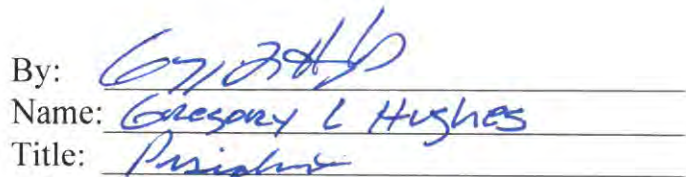 By:
Name: Gregory L Hughes
Title: President